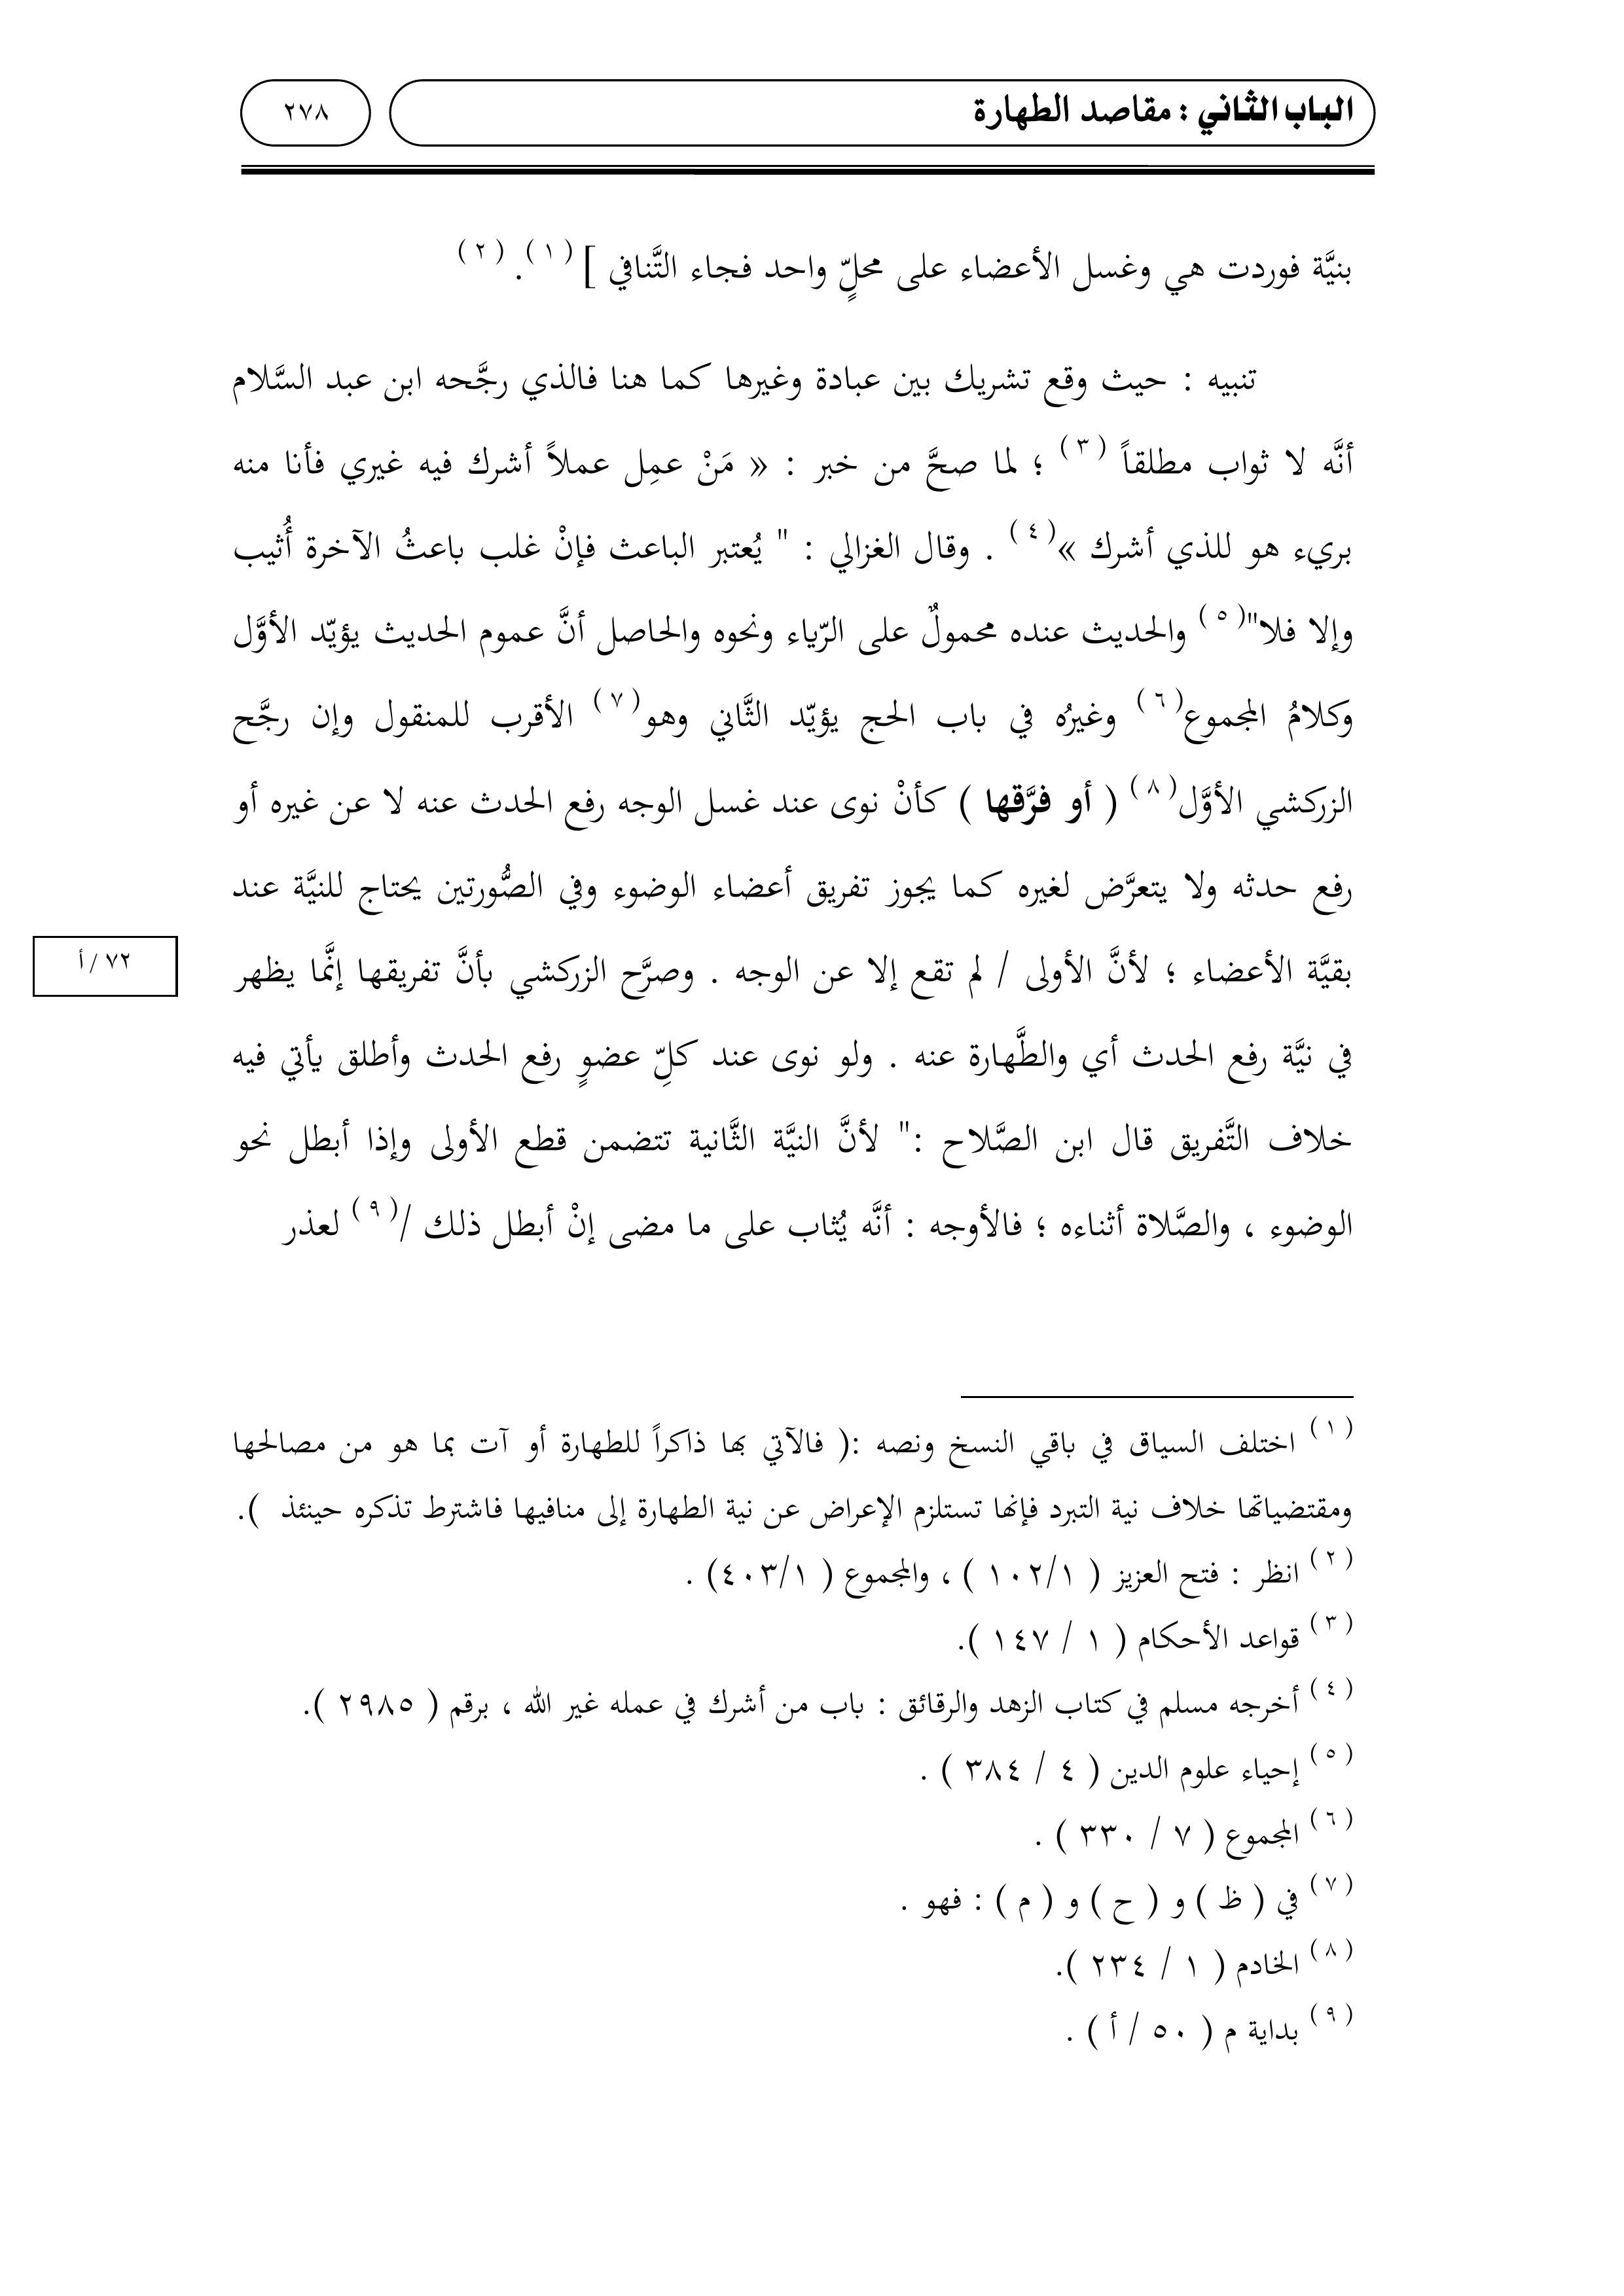 الباب الثاني : مقاصد الطهارة
٢٧٨
بنيَّة فوردت هي وغسل الأعضاء على محلٍّ واحد فجاء التَّنافي ] (١) . (٢)
تنبيه : حيث وقع تشريك بين عبادة وغيرها كما هنا فالذي رجَّحه ابن عبد السَّلام
أنَّه لا ثواب مطلقاً (٣) ؛ لما صحَّ من خبر : « مَنْ عمِل عملاً أشرك فيه غيري فأنا منه
بريء هو للذي أشرك »(٤) . وقال الغزالي : " يُعتبر الباعث فإنْ غلب باعثُ الآخرة أُثيب
وإلا فلا"(٥) والحديث عنده محمولٌ على الرّياء ونحوه والحاصل أنَّ عموم الحديث يؤيّد الأوَّل
وكلامُ المجموع(٦) وغيرُه في باب الحج يؤيّد الثَّاني وهو(٧) الأقرب للمنقول وإن رجَّح
الزركشي الأوَّل(٨) ( أو فرَّقها ) كأنْ نوى عند غسل الوجه رفع الحدث عنه لا عن غيره أو
رفع حدثه ولا يتعرَّض لغيره كما يجوز تفريق أعضاء الوضوء وفي الصُّورتين يحتاج للنيَّة عند
بقيَّة الأعضاء ؛ لأنَّ الأولى / لم تقع إلا عن الوجه . وصرَّح الزركشي بأنَّ تفريقها إنَّما يظهر
٧٢ /أ
في نيَّة رفع الحدث أي والطَّهارة عنه . ولو نوى عند كلِّ عضوٍ رفع الحدث وأطلق يأتي فيه
خلاف التَّفريق قال ابن الصَّلاح :" لأنَّ النيَّة الثَّانية تتضمن قطع الأولى وإذا أبطل نحو
الوضوء ، والصَّلاة أثناءه ؛ فالأوجه : أنَّه يُثاب على ما مضى إنْ أبطل ذلك /(٩) لعذر
(١) اختلف السياق في باقي النسخ ونصه :( فالآتي بها ذاكراً للطهارة أو آت بما هو من مصالحها
ومقتضياتها خلاف نية التبرد فإنها تستلزم الإعراض عن نية الطهارة إلى منافيها فاشترط تذكره حينئذ ).
(٢) انظر : فتح العزيز ( ١٠٢/١ ) ، والمجموع ( ٤٠٣/١) .
(٣) قواعد الأحكام ( ١ / ١٤٧ ).
(٤) أخرجه مسلم في كتاب الزهد والرقائق : باب من أشرك في عمله غير الله ، برقم ( ٢٩٨٥ ).
(٥) إحياء علوم الدين ( ٤ / ٣٨٤ ) .
(٦) المجموع ( ٧ / ٣٣٠ ) .
(٧) في ( ظ ) و ( ح ) و ( م ) : فهو .
(٨) الخادم ( ١ / ٢٣٤ ).
(٩) بداية م ( ٥٠ / أ ) .